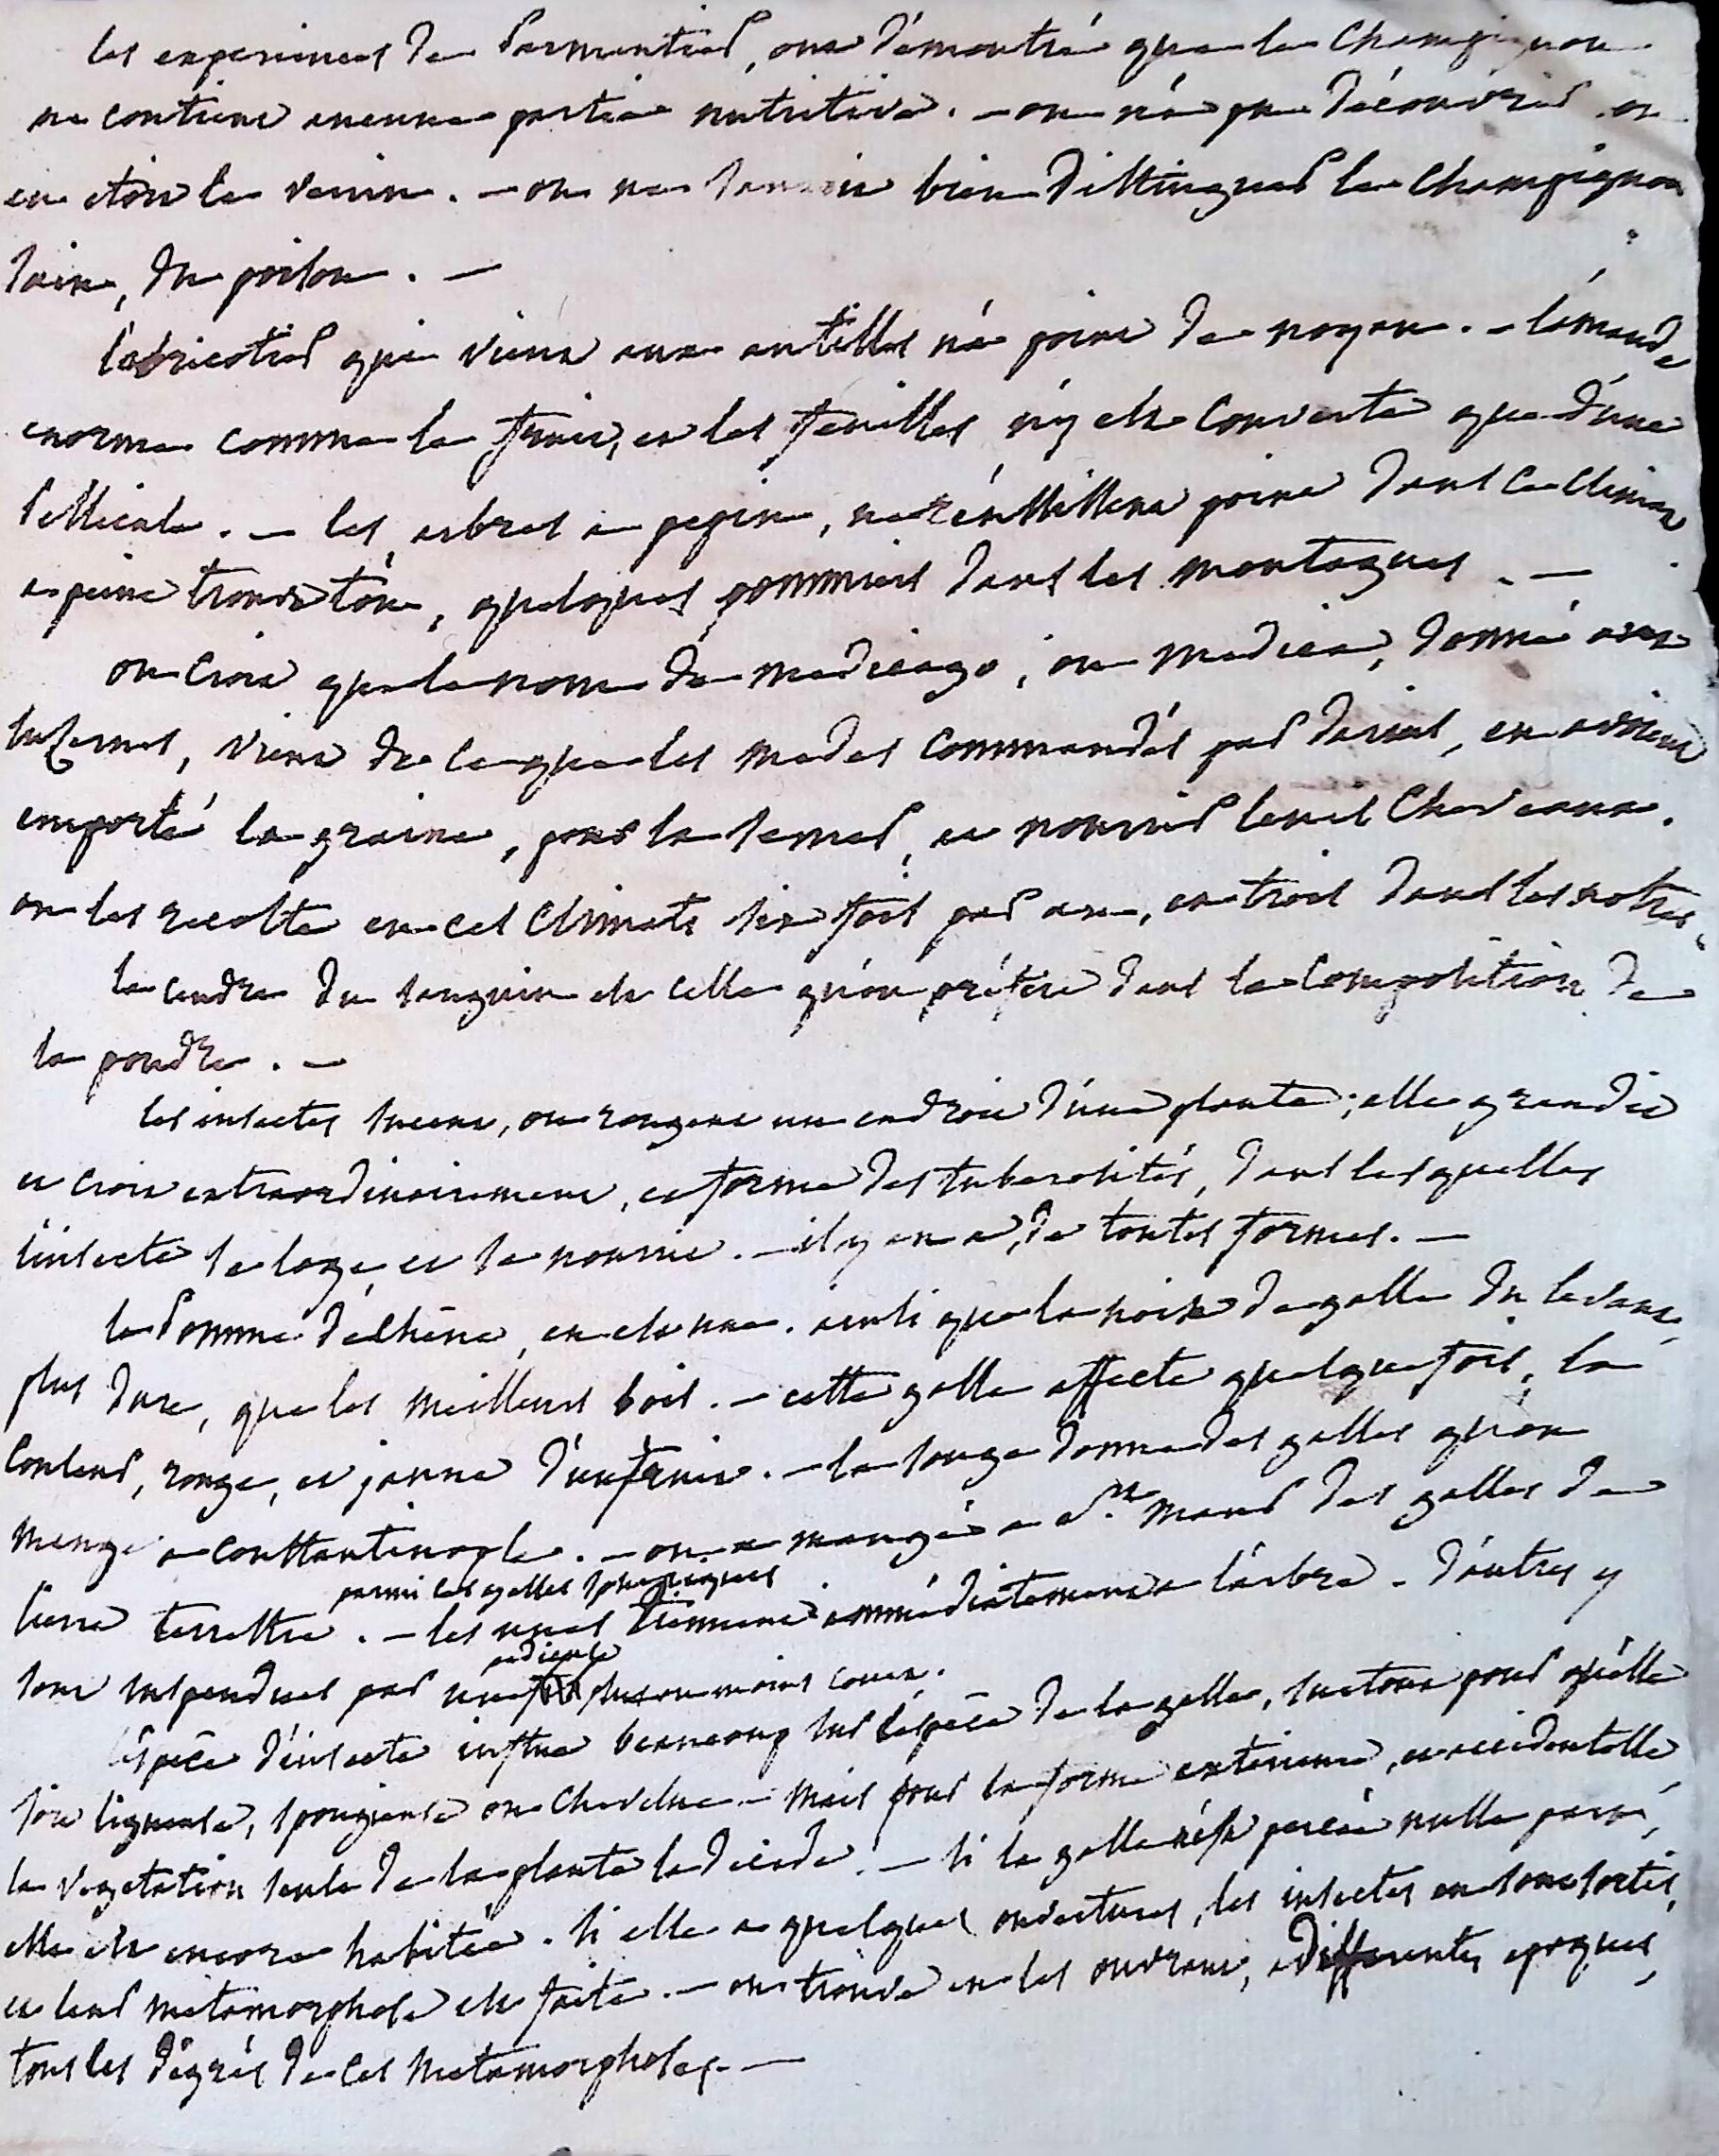 les experiences de Parmentier, ont démontré que le Champignon
ne contient aucune partie nutritive. — on n'a pu découvrir où
en étoit le venin. — on ne sauroit bien distinguer le Champignon
sain, du poison. —
l'abricotier qui vient aux antilles n'a point de noyau. — l'amande
enorme comme le fruit, et les feuilles n'y est couverte que d'une
Pellicule. — les arbres a pepin, ne réussissent point dans ce climat
a peine trouve t'on, quelques pommiers dans les montagnes. —
on croit que le nom de medicago, ou medica, donné aux
luzernes, vient de ce que les medes commandés par darius, en avoient
emporté la graine, pour la semer, et nourrir leurs Chevaux.
on les recolte en ces climats six fois par an, et trois dans les notres.
la cendre du sanguin est celle qu'on préfere dans la composition de
la poudre. —
les insectes sucent, ou rongent un endroit d'une plante; elle grandit
et croit extraordinairement, et forme des tuberosités, dans lesquelles
l'insecte se loge, et se nourrit. — il y en a, de toutes formes. —
la Pomme de chêne, en est une. ainsi que la noix de galle du levant,
plus dure, que les meilleurs bois. — cette galle affecte quelque fois, la
couleur, rouge, et jaune d'un fruit. — la sauge donne des galles qu'on
mange a constantinople. — on a mangé a St. Maur des galles de
lierre terrestre. — les unes parmi les galles spheriques tiennent immédiatement a l'arbre. — d'autres y
sont suspendues par un pedicule plus ou moins court.
l'éspece d'insecte influe beaucoup sur l'éspece de la galle, surtout pour qu'elle
soit ligneuse, spongieuse ou chevelue. — mais pour la forme exterieure, et accidentelle
la vegetation seule de la plante la decide. — si la galle n'est percée nulle part,
elle est encore habitée. si elle a quelques ouvertures, les insectes en sont sortis,
et leur metamorphose est faite. — on trouve en les ouvrant, a differentes epoques,
tous les dégrés de ces metamorphoses. —